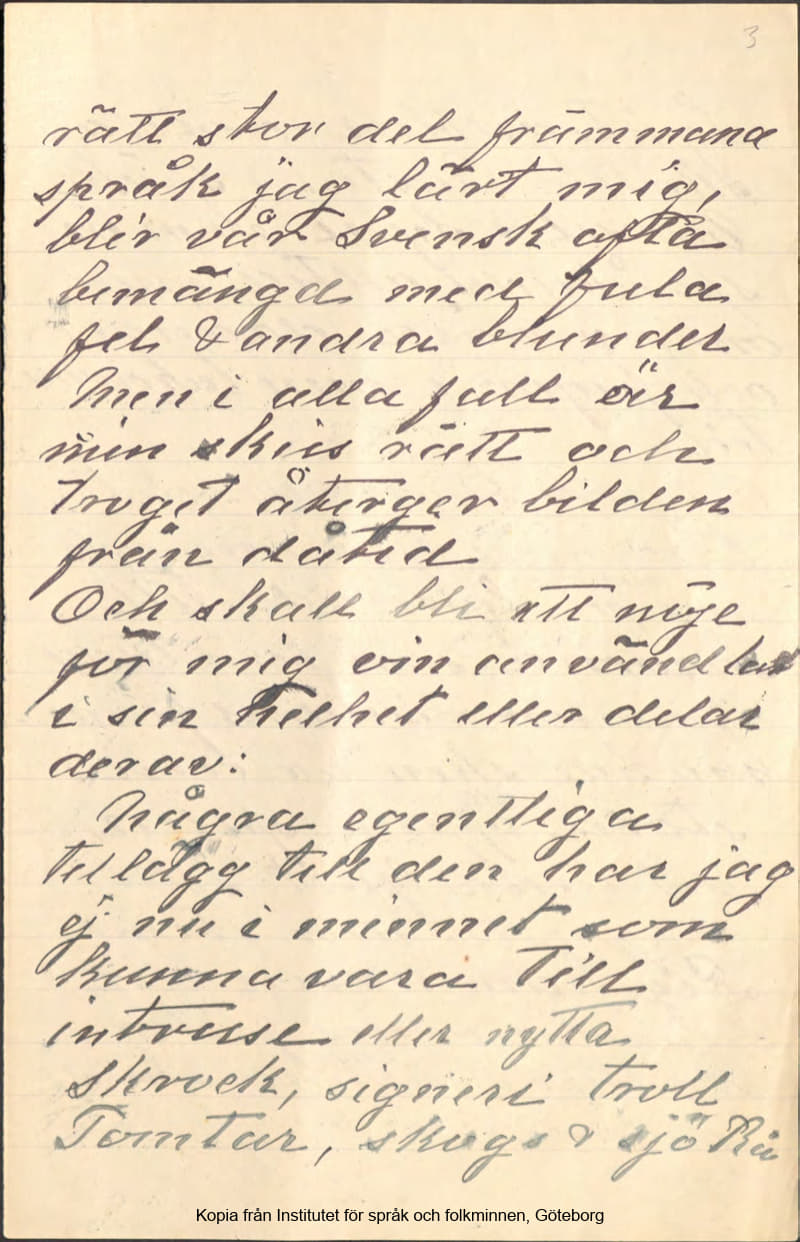 3
rätt stor del främmand
språk jag lärt mig,
blir vår Svensk ofta
bemängd med fula
fel & andra blunder
Men i alla fall är
min skiss rätt och
troget återger bilden
från dåtid
Och skall bli ett nöje
för mig om användbar
i sin helhet eller delar
derav:
Några egentliga
tillägg till den har jag
ej nu i minnet som
kunna vara till
intresse eller nytta
Skrock, signeri troll
Tomtar, skogs & sjö Rå
Kopia från Institutet för språk och folkminnen, Göteborg